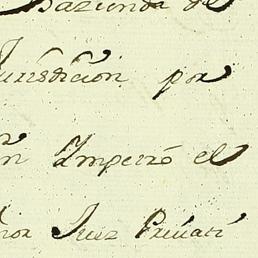 Hazienda de
Jurisdicion por
n Imperró el
ñor Juez Privati